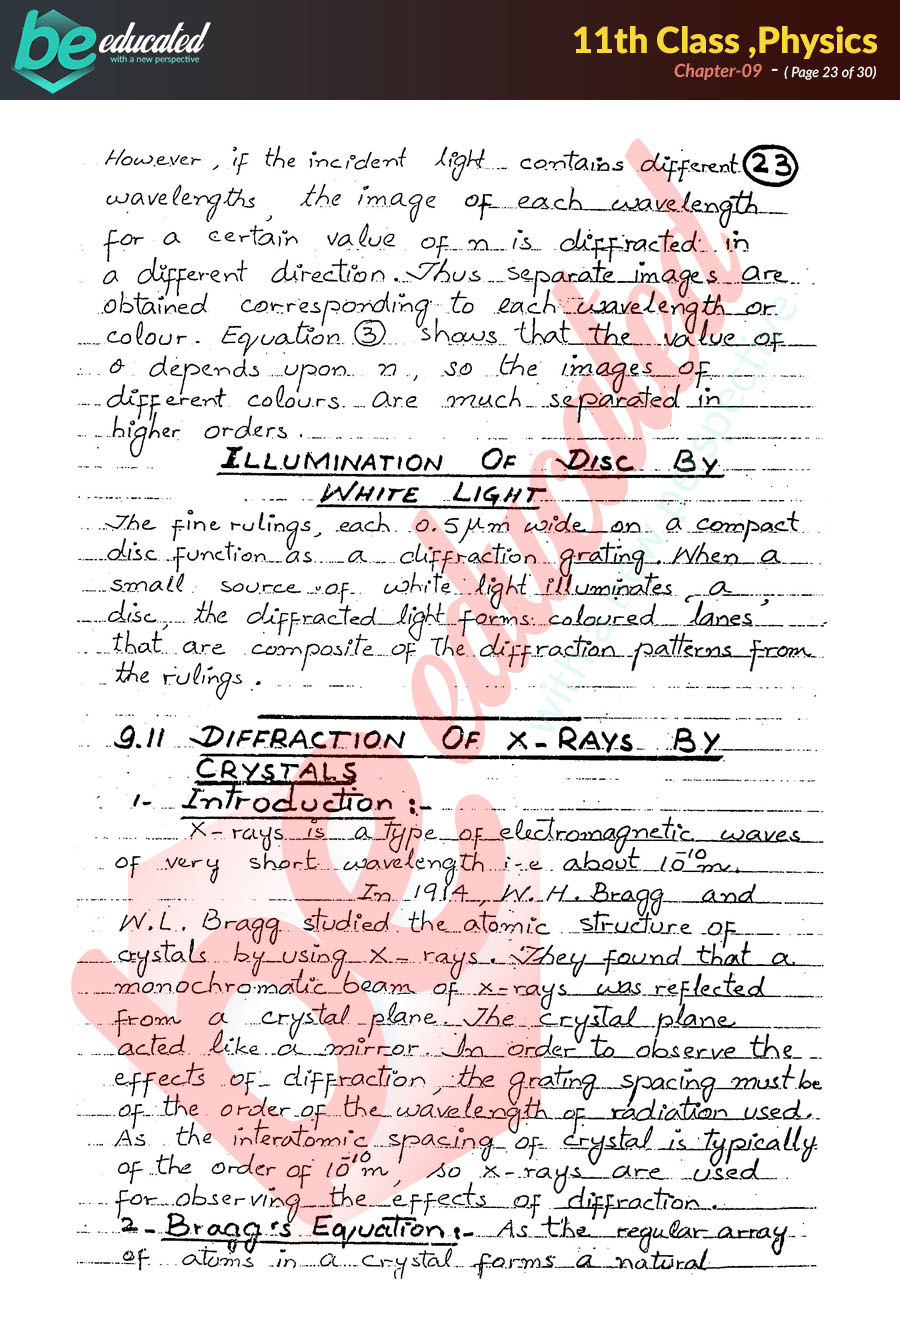 be educated
with a new perspective
11th Class ,Physics
Chapter-09 - ( Page 23 of 30)
However, if the incident light contains different 23
wavelengths, the image of each wavelength
for a certain value of n is diffracted in
a different direction. Thus separate images are
obtained corresponding to each wavelength or
colour. Equation ③ shows that the value of
θ depends upon n, so the images of
different colours are much separated in
higher orders.
ILLUMINATION OF DISC BY
WHITE LIGHT
The fine rulings, each 0.5 μm wide on a compact
disc function as a diffraction grating. When a
small source of white light illuminates a
disc, the diffracted light forms coloured 'lanes'
that are composite of the diffraction patterns from
the rulings.
9.11 DIFFRACTION OF X-RAYS BY
CRYSTALS
1- Introduction :-
X-rays is a type of electromagnetic waves
of very short wavelength i-e about 10⁻¹⁰m.
In 1914, W. H. Bragg and
W.L. Bragg studied the atomic structure of
crystals by using X-rays. They found that a
monochromatic beam of x-rays was reflected
from a crystal plane. The crystal plane
acted like a mirror. In order to observe the
effects of diffraction, the grating spacing must be
of the order of the wavelength of radiation used.
As the interatomic spacing of crystal is typically
of the order of 10⁻¹⁰m, so x-rays are used
for observing the effects of diffraction.
2- Bragg's Equation:- As the regular array
of atoms in a crystal forms a natural
be educated
with a new perspective